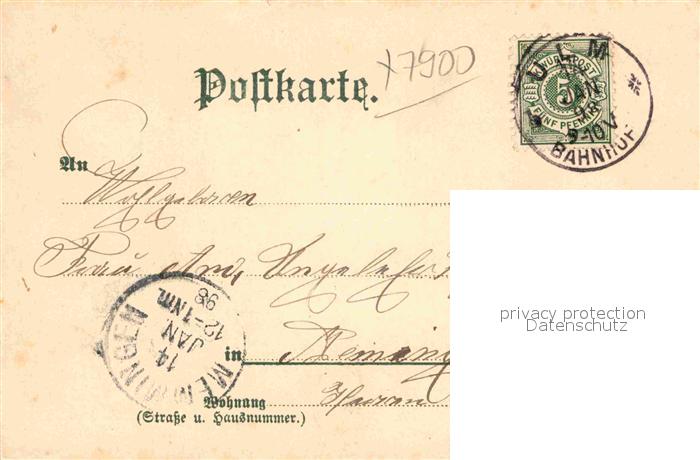 x7900
Postkarte.
K. WÜRTT. POST
5
FÜNF PFENNIG
ULM
JAN
98
9-10 V
BAHNHOF
An
Wohlgeboren
Frau
in Memming
Bayern
MEMMINGEN
14
JAN
12-1 NM.
98
Wohnung
(Straße u. Hausnummer.)
privacy protection
Datenschutz